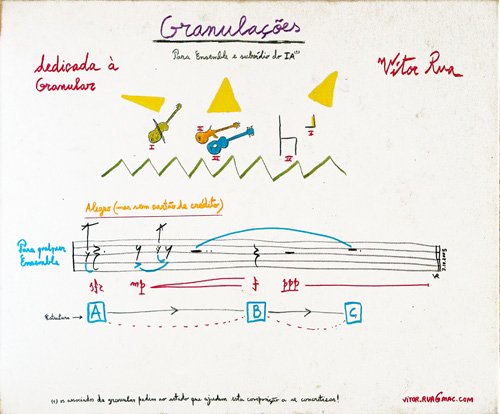 Granulações
Para Ensemble e subsídio do IA⁽¹⁾
dedicada à
Granular
Vítor Rua
I
II
III
IV
Alegro (mas sem cartão de crédito)
Para qualquer
Ensemble
sfz mp f ppp
Estrutura A B C
(1) os associados da granular pedem ao estado que ajudem esta composição a se concretizar!
VITOR.RUA@MAC.COM